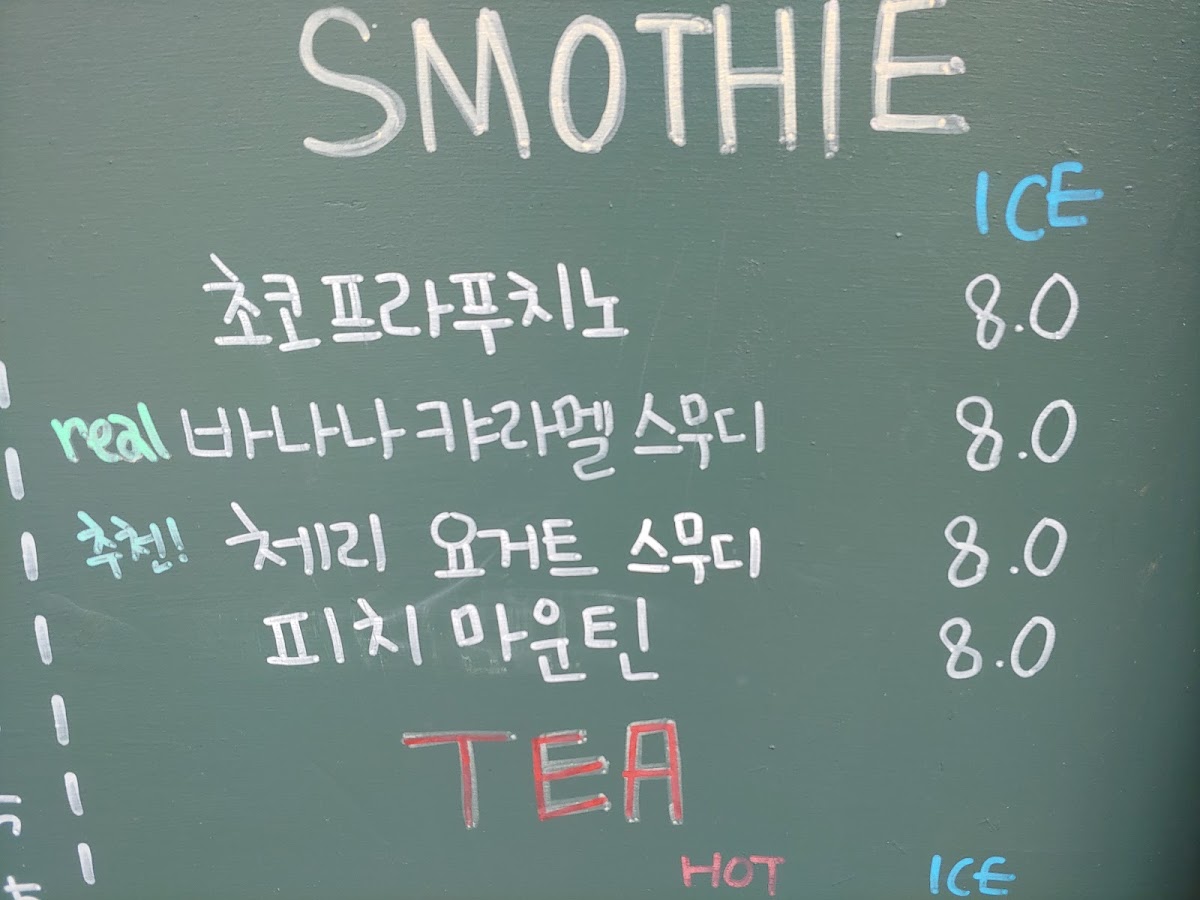 SMOTHIE
ICE
초코프라푸치노 8.0
real 바나나 캬라멜 스무디 8.0
추천! 체리 요거트 스무디 8.0
피치 마운틴 8.0
TEA
HOT ICE